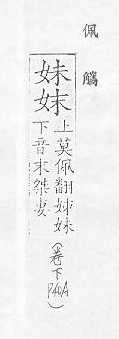 佩觿
妹妺
上莫佩翻姊妹
下音末桀妻
(卷下
P40A)